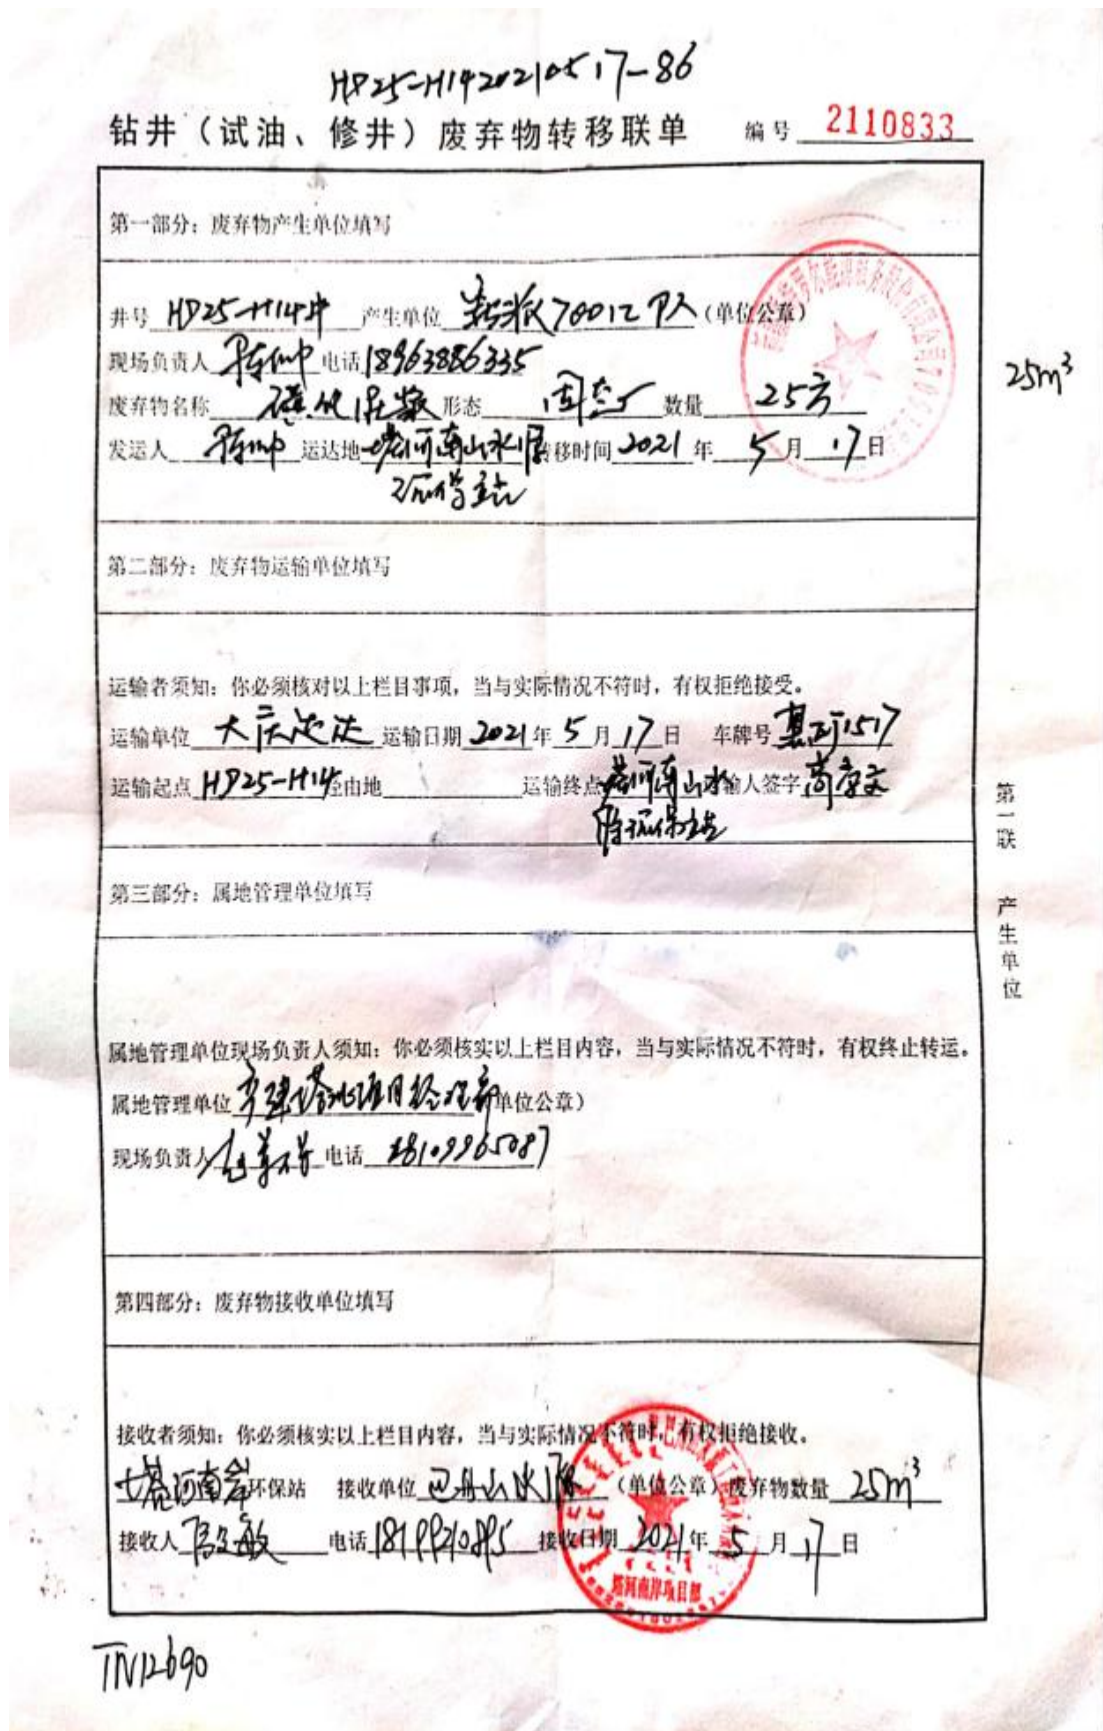 HP25-H1420210517-86
钻井（试油、修井）废弃物转移联单 编号 2110833
第一部分：废弃物产生单位填写
井号 HP25-H14井 产生单位 70012 (单位公章)
现场负责人 电话 18963886335
废弃物名称 磺化泥浆 形态 固态 数量 25方
发运人 运达地 塔河南山水源 转移时间 2021 年 5 月 17 日
环保站
25m³
第二部分：废弃物运输单位填写
运输者须知：你必须核对以上栏目事项，当与实际情况不符时，有权拒绝接受。
运输单位 大庆 运输日期 2021 年 5 月 17 日 车牌号 1517
运输起点 HP25-H14 经由地 运输终点 塔河南山水 运输人签字
源环保站
第三部分：属地管理单位填写
属地管理单位现场负责人须知：你必须核实以上栏目内容，当与实际情况不符时，有权终止转运。
属地管理单位 塔北项目经理部 单位公章）
现场负责人 电话 18109965087
第四部分：废弃物接收单位填写
接收者须知：你必须核实以上栏目内容，当与实际情况不符时，有权拒绝接收。
塔河南岸 环保站 接收单位 巴州山水源 (单位公章) 废弃物数量 25m³
接收人 电话 接收日期 2021 年 5 月 17 日
塔河南岸项目部
第一联 产生单位
TN12690